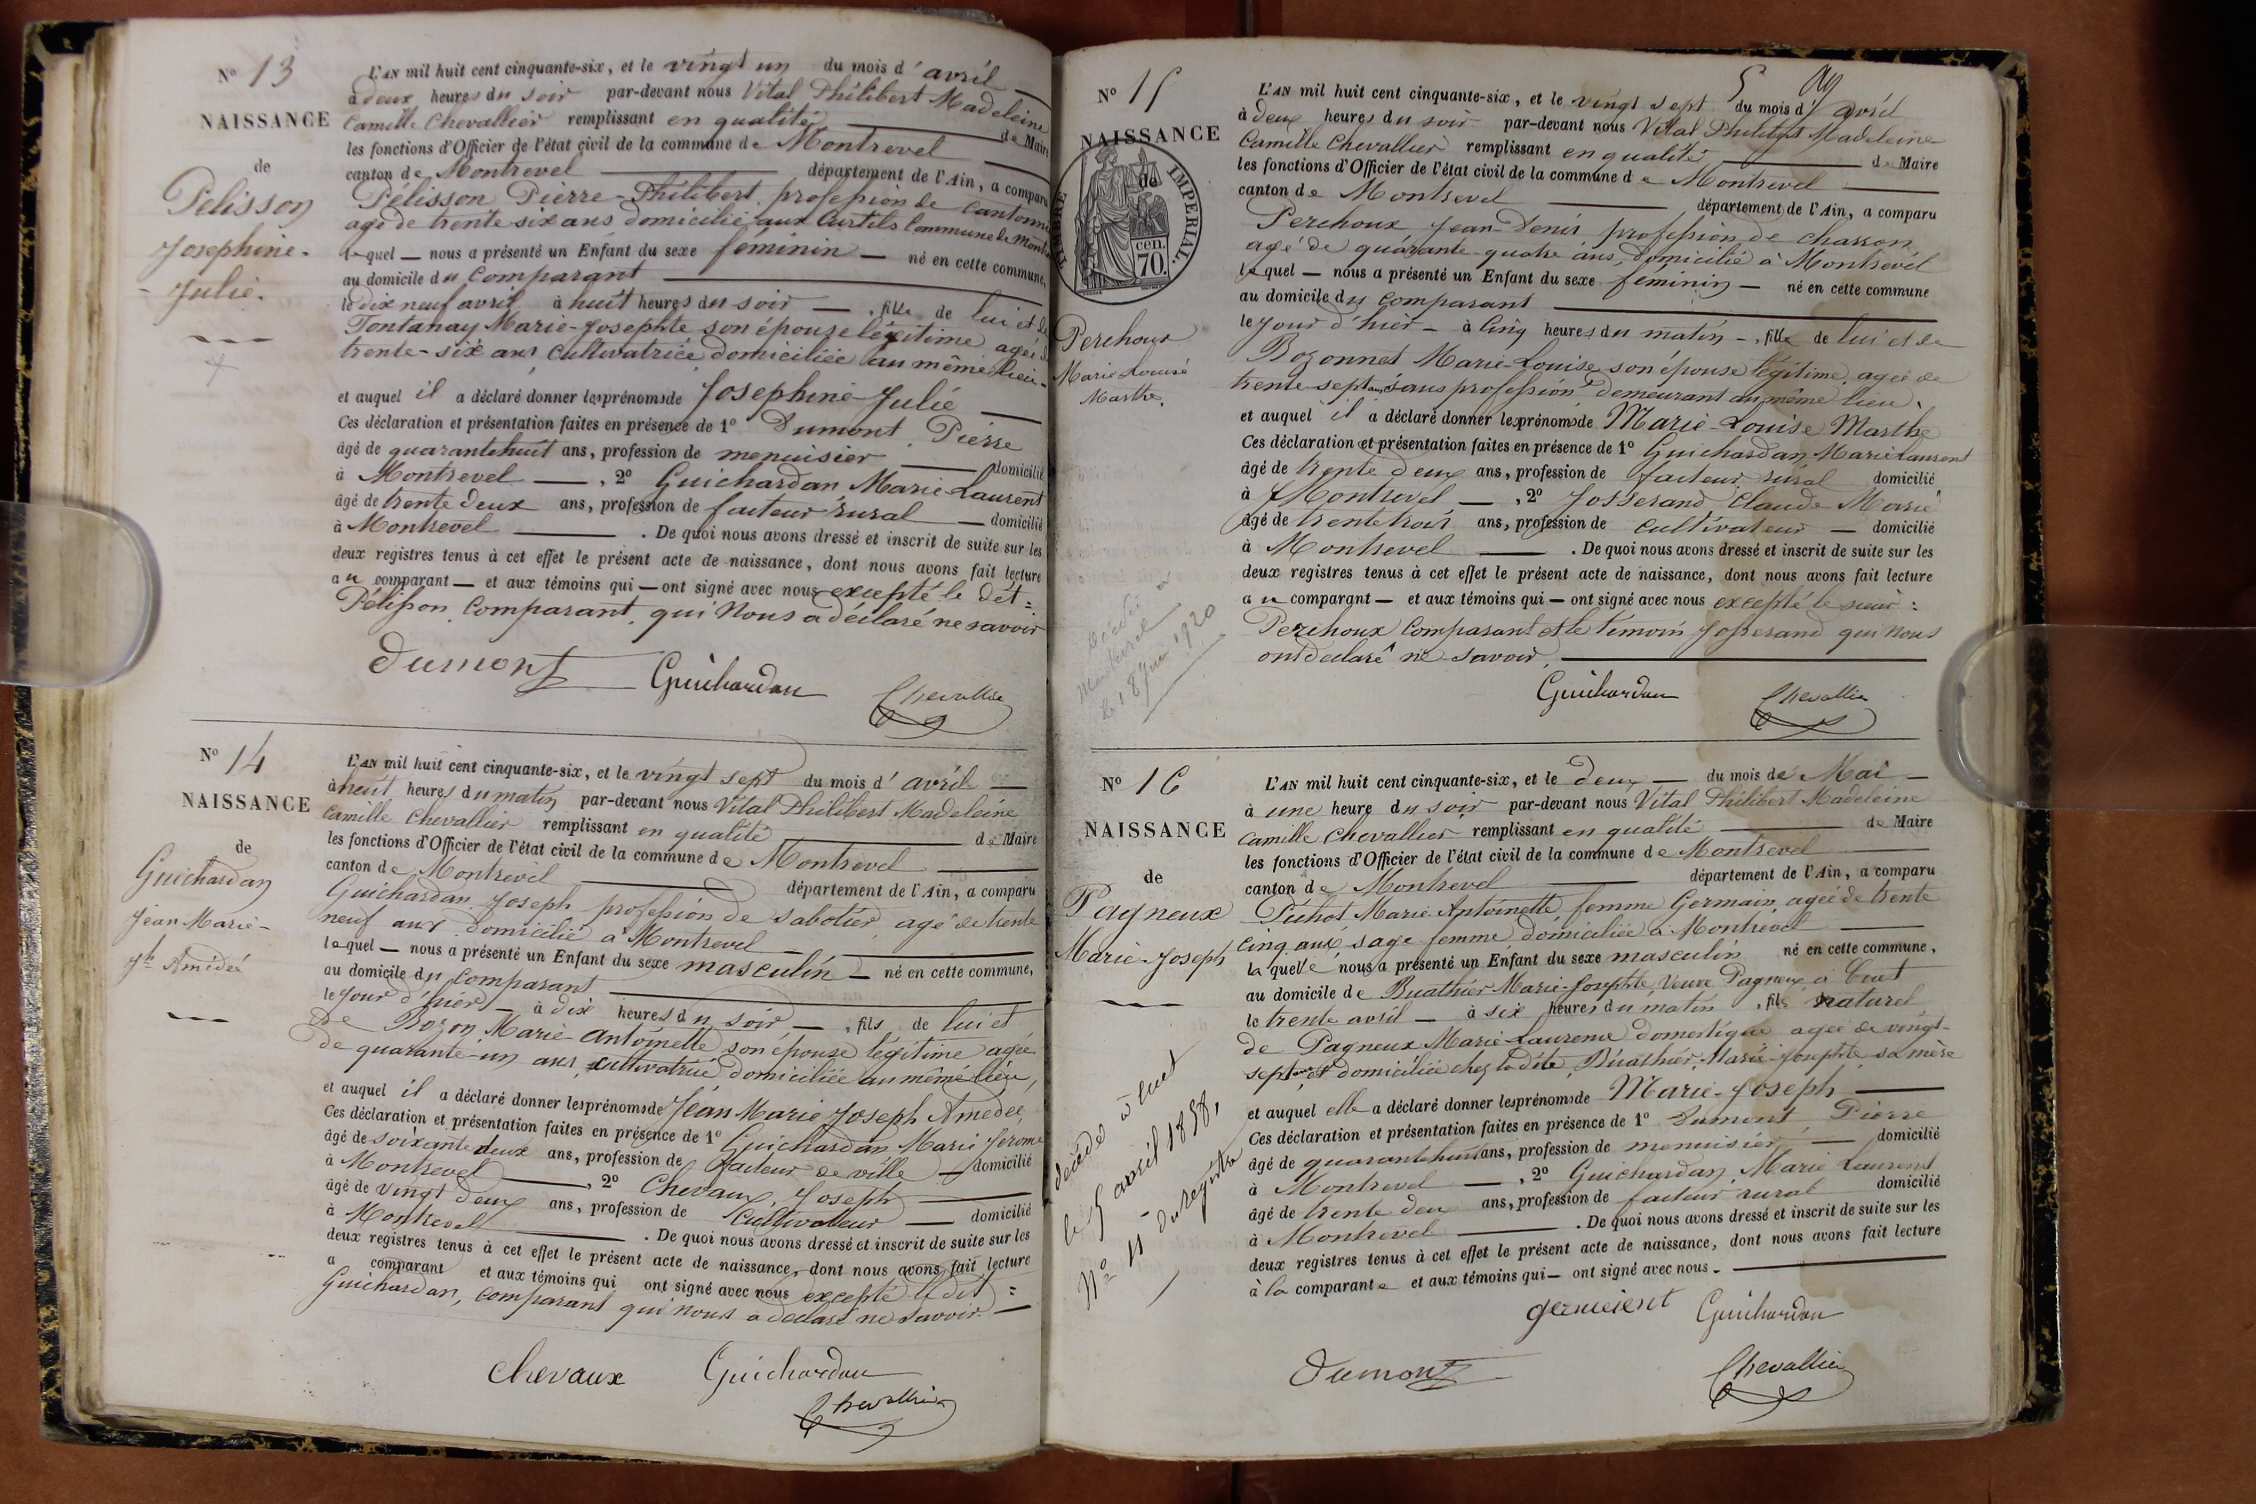 N° 13
NAISSANCE
de
Pelisson
Josephine-
Julie.
L'AN mil huit cent cinquante-six, et le vingt un du mois d'avril
à deux heures du soir par-devant nous Vital Philibert Madeleine
Camille Chevallier remplissant en qualité de Maire
les fonctions d'Officier de l'état civil de la commune de Montrevel
canton de Montrevel département de l'Ain, a comparu
Pélisson Pierre-Philibert profession de Cantonn
agé de trente six ans domicilié aux Curtils Commune de Mont
lequel nous a présenté un Enfant du sexe féminin né en cette commune,
au domicile du Comparant
le dix neuf avril à huit heures du soir , fille de lui et de
Tontanay Marie-Josephte son épouse légitime agée de
trente-six ans, Cultivatrice domiciliée au même lieu-
et auquel il a déclaré donner les prénoms de Josephine Julie
Ces déclaration et présentation faites en présence de 1° Dumont, Pierre
âgé de quarante huit ans, profession de menuisier domicilié
à Montrevel , 2° Guichardan Marie-Laurent
âgé de trente deux ans, profession de facteur rural domicilié
à Montrevel . De quoi nous avons dressé et inscrit de suite sur les
deux registres tenus à cet effet le présent acte de naissance, dont nous avons fait lecture
au comparant et aux témoins qui ont signé avec nous excepté le dét =
Pélisson Comparant, qui Nous a déclaré ne savoir
Dumont Guichardan Chevallier
N° 14
NAISSANCE
de
Guichardan
Jean Marie-
Jh Amédée
L'AN mil huit cent cinquante-six, et le vingt sept du mois d'avril
à huit heures du matin par-devant nous Vital Philibert Madeleine
Camille Chevallier remplissant en qualité de Maire
les fonctions d'Officier de l'état civil de la commune de Montrevel
canton de Montrevel département de l'Ain, a comparu
Guichardan Joseph profession de sabotier agé de trente
neuf ans domicilié à Montrevel
lequel nous a présenté un Enfant du sexe masculin né en cette commune,
au domicile du Comparant
le jour d'hier à dix heures du soir , fils de lui et
de Bozon Marie Antoinette son épouse légitime agée
de quarante-un ans, cultivatrice domiciliée au même lieu,
et auquel il a déclaré donner les prénoms de Jean Marie Joseph Amédée
Ces déclaration et présentation faites en présence de 1° Guichardan Marie Jerome
âgé de soixante deux ans, profession de facteur de ville domicilié
à Montrevel , 2° Chevaux, Joseph
âgé de vingt deux ans, profession de Cultivateur domicilié
à Montrevel . De quoi nous avons dressé et inscrit de suite sur les
deux registres tenus à cet effet le présent acte de naissance, dont nous avons fait lecture
a comparant et aux témoins qui ont signé avec nous excepté le dit =
Guichardan, comparant qui nous a déclaré ne savoir.
Chevaux Guichardan
Chevallier
N° 15
NAISSANCE
de
TIMBRE IMPERIAL.
70. cen.
Perchoux
Marie-Louise
Marthe.
Décédée à
Montrevel
1920
5
L'AN mil huit cent cinquante-six, et le vingt sept du mois d'avril
à deux heures du soir par-devant nous Vital Philibert Madeleine
Camille Chevallier remplissant en qualité de Maire
les fonctions d'Officier de l'état civil de la commune de Montrevel
canton de Montrevel département de l'Ain, a comparu
Perchoux Jean-Denis profession de charron
agé de quarante-quatre ans, domicilié à Montrevel
lequel nous a présenté un Enfant du sexe féminin né en cette commune
au domicile du Comparant
le jour d'hier à Cinq heures du matin , fille de lui et de
Bozonnet Marie-Louise son épouse légitime, agée de
trente-sept ans, sans profession demeurant au même lieu.
et auquel il a déclaré donner les prénoms de Marie-Louise Marthe
Ces déclaration et présentation faites en présence de 1° Guichardan Marie Laurent
âgé de trente deux ans, profession de facteur rural domicilié
à Montrevel , 2° Josserand Claude Marie
âgé de trente trois ans, profession de cultivateur domicilié
à Montrevel . De quoi nous avons dressé et inscrit de suite sur les
deux registres tenus à cet effet le présent acte de naissance, dont nous avons fait lecture
au comparant et aux témoins qui ont signé avec nous excepté le sieur =
Perchoux Comparant et le témoin Josserand qui nous
ont déclaré ne savoir.
Guichardan Chevallier
N° 16
NAISSANCE
de
Pagneux
Marie-Joseph
décédé à Cuet
le 5 avril 1858,
N° 11 du registre
L'AN mil huit cent cinquante-six, et le deux du mois de Mai
à une heure du soir par-devant nous Vital Philibert Madeleine
Camille Chevallier remplissant en qualité de Maire
les fonctions d'Officier de l'état civil de la commune de Montrevel
canton de Montrevel département de l'Ain, a comparu
Pichot Marie-Antoinette femme Germain, agée de trente
cinq ans, sage femme domiciliée à Montrevel
laquelle nous a présenté un Enfant du sexe masculin né en cette commune,
au domicile de Buathier Marie-Josephte, Veuve Pagneux à Cuet
le trente avril à six heures du matin , fils naturel
de Pagneux Marie Laurence domestique agée de vingt-
sept ans et domiciliée chez la dite Buathier Marie-Josephte sa mère
et auquel elle a déclaré donner les prénoms de Marie-Joseph
Ces déclaration et présentation faites en présence de 1° Dumont, Pierre
âgé de quarante huit ans, profession de menuisier domicilié
à Montrevel , 2° Guichardan, Marie Laurent
âgé de trente deux ans, profession de facteur rural domicilié
à Montrevel . De quoi nous avons dressé et inscrit de suite sur les
deux registres tenus à cet effet le présent acte de naissance, dont nous avons fait lecture
à la comparante et aux témoins qui ont signé avec nous.
Guichardan
Dumont Chevallier